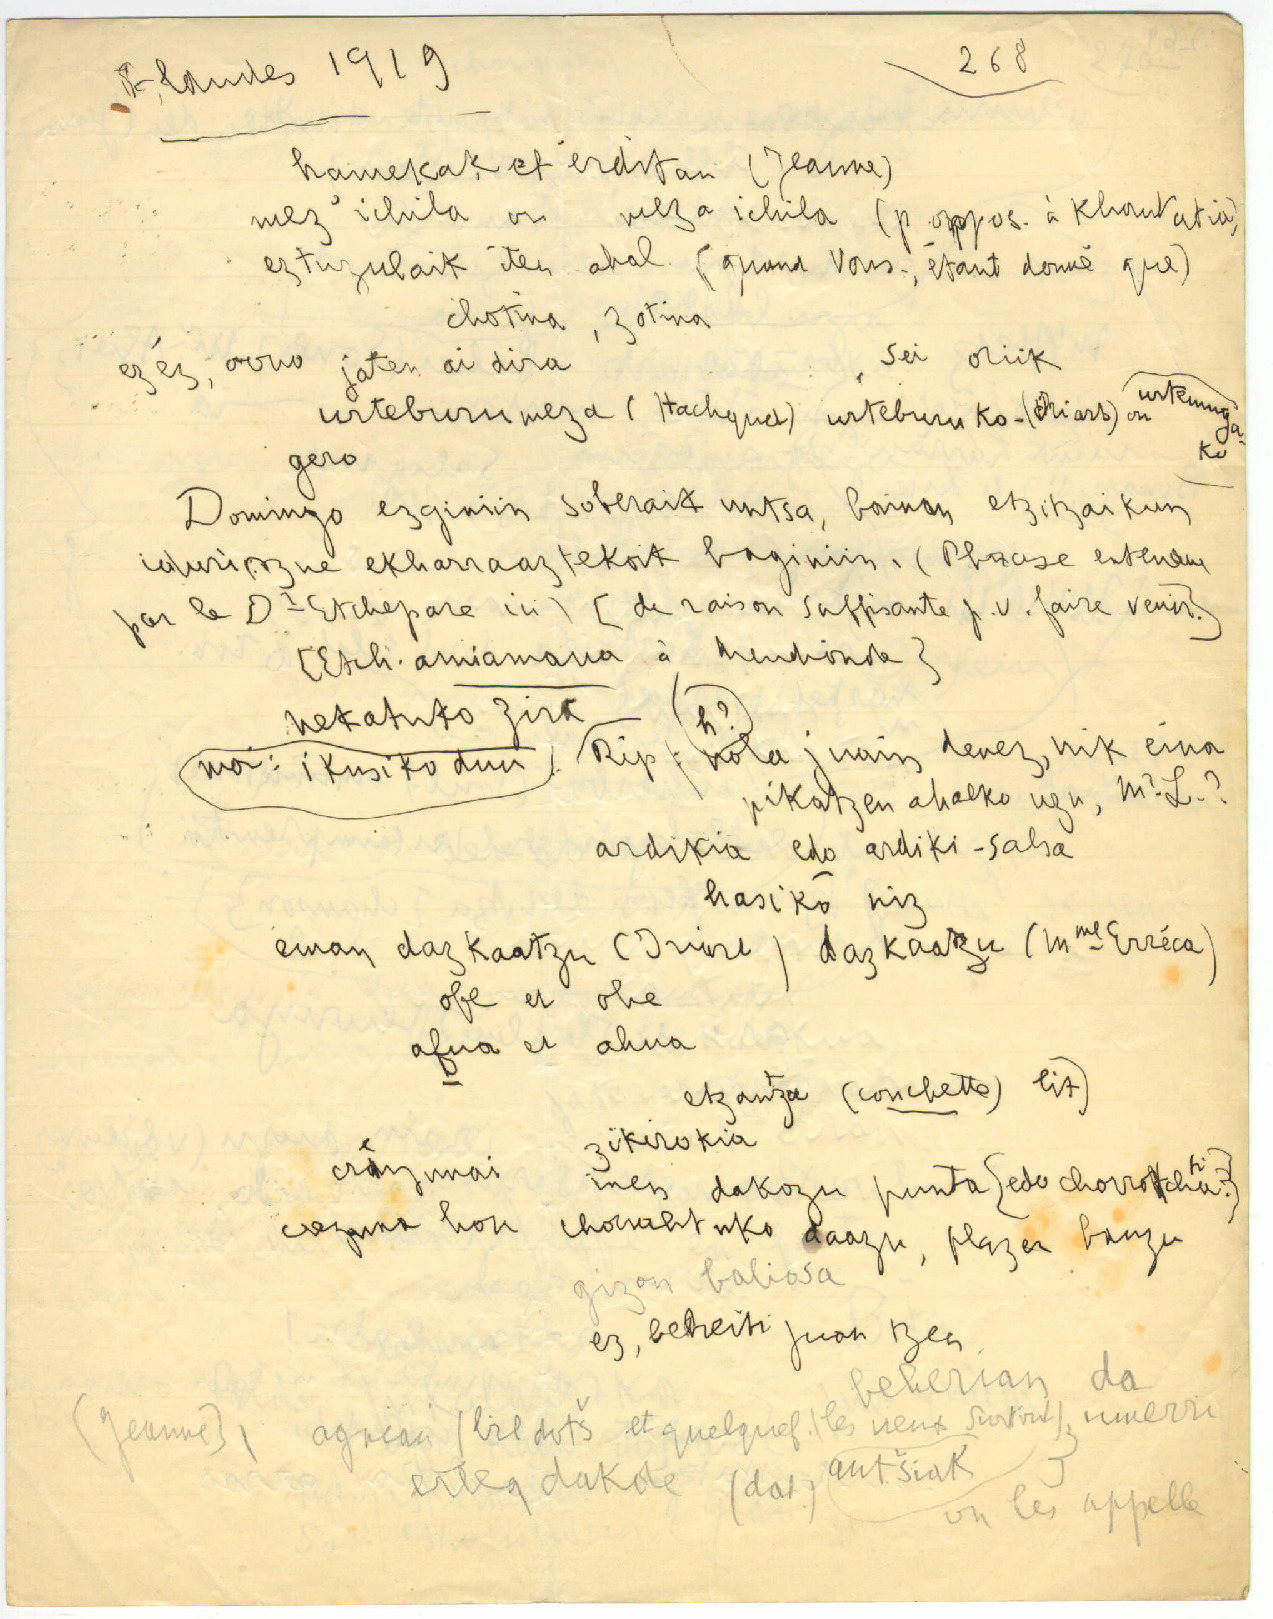 Landes 1919
268
hamekak et erditan (Jeanne)
mez ichila ou meza ichila (p. oppos. à khantatia)
eztuzulaik iten ahal (quand vous, étant donné que)
chotina, zotina
ez éz, orno jaten ai dira
sei oriik
urteburu meza (Hachquet) urteburuko (Hiart) ou urtemuga-
ko
gero
Domingo ezginiin soberaik untsa, bainan etzitzaikun
iduri ekharraaztekoik baginiin. (Phrase entendue
par le Dr Etchepare ici) [de raison suffisante p. v. faire venir.]
[Etch. amiamaua à Mendionde]
nekatuko zira
moi: ikusiko duu
Rip: nola juain denez, nik eina
h?
pikatzen ahalko uzu, Mr L.?
ardikia edo ardiki-salsa
hasiko niz
eman dazkaatzu (Iriure) dazkaatzu (Mme Erréca)
ofe et ohe
afua et ahua
etzantza (couchette) lit)
zikirokia
inen dakozu punta [edo chorrotcha?]
hi
hori chorrohtuko daazu, plazer bauzu
gizon baliosa
ez, beheiti juan tzen
beherian da
(Jeanne), agneau (bildotš et quelquef. (les vieux surtout) umerri
erten dakote (dat.) antšiak
on les appelle